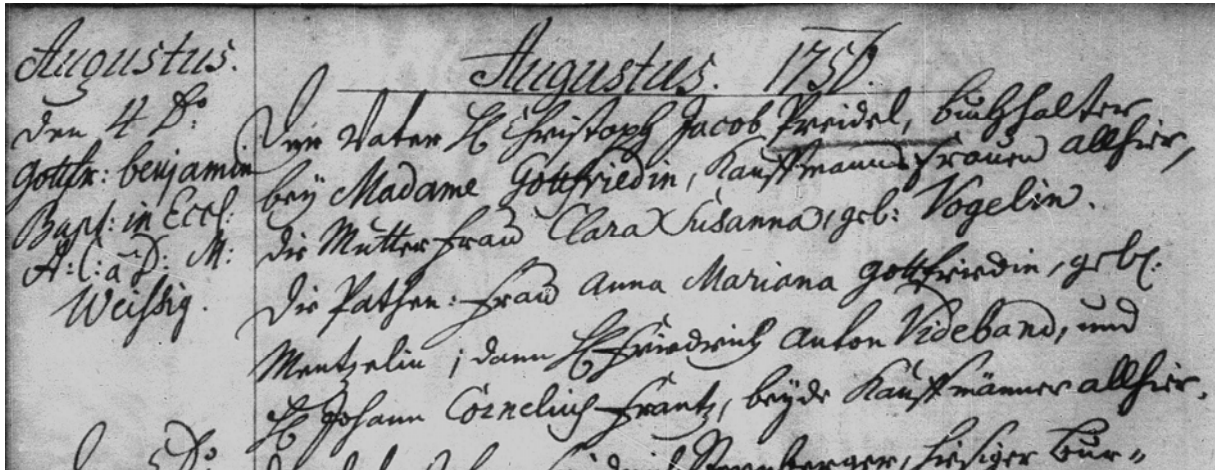 Augustus.
den 4 D:
Gottfr: benjamin
Bapt: in Eccl:
A: C: a D: M:
Weissig.
Augustus. 175
Der Vater H Christoph Jacob Preidel, buchhalter
bey Madame Gottfriedin, Kauffmanns frauen allhier,
die Mutter frau Clara Susanna, geb: Vogelin.
Die Pathen: frau Anna Mariana Gottfriedin, geb:
Mentzelin, dann H Friedrich Anton Videband, und
H Johann Cornelius Frantz, beyde Kauffmänner allhier.
D:
hiesiger bur=